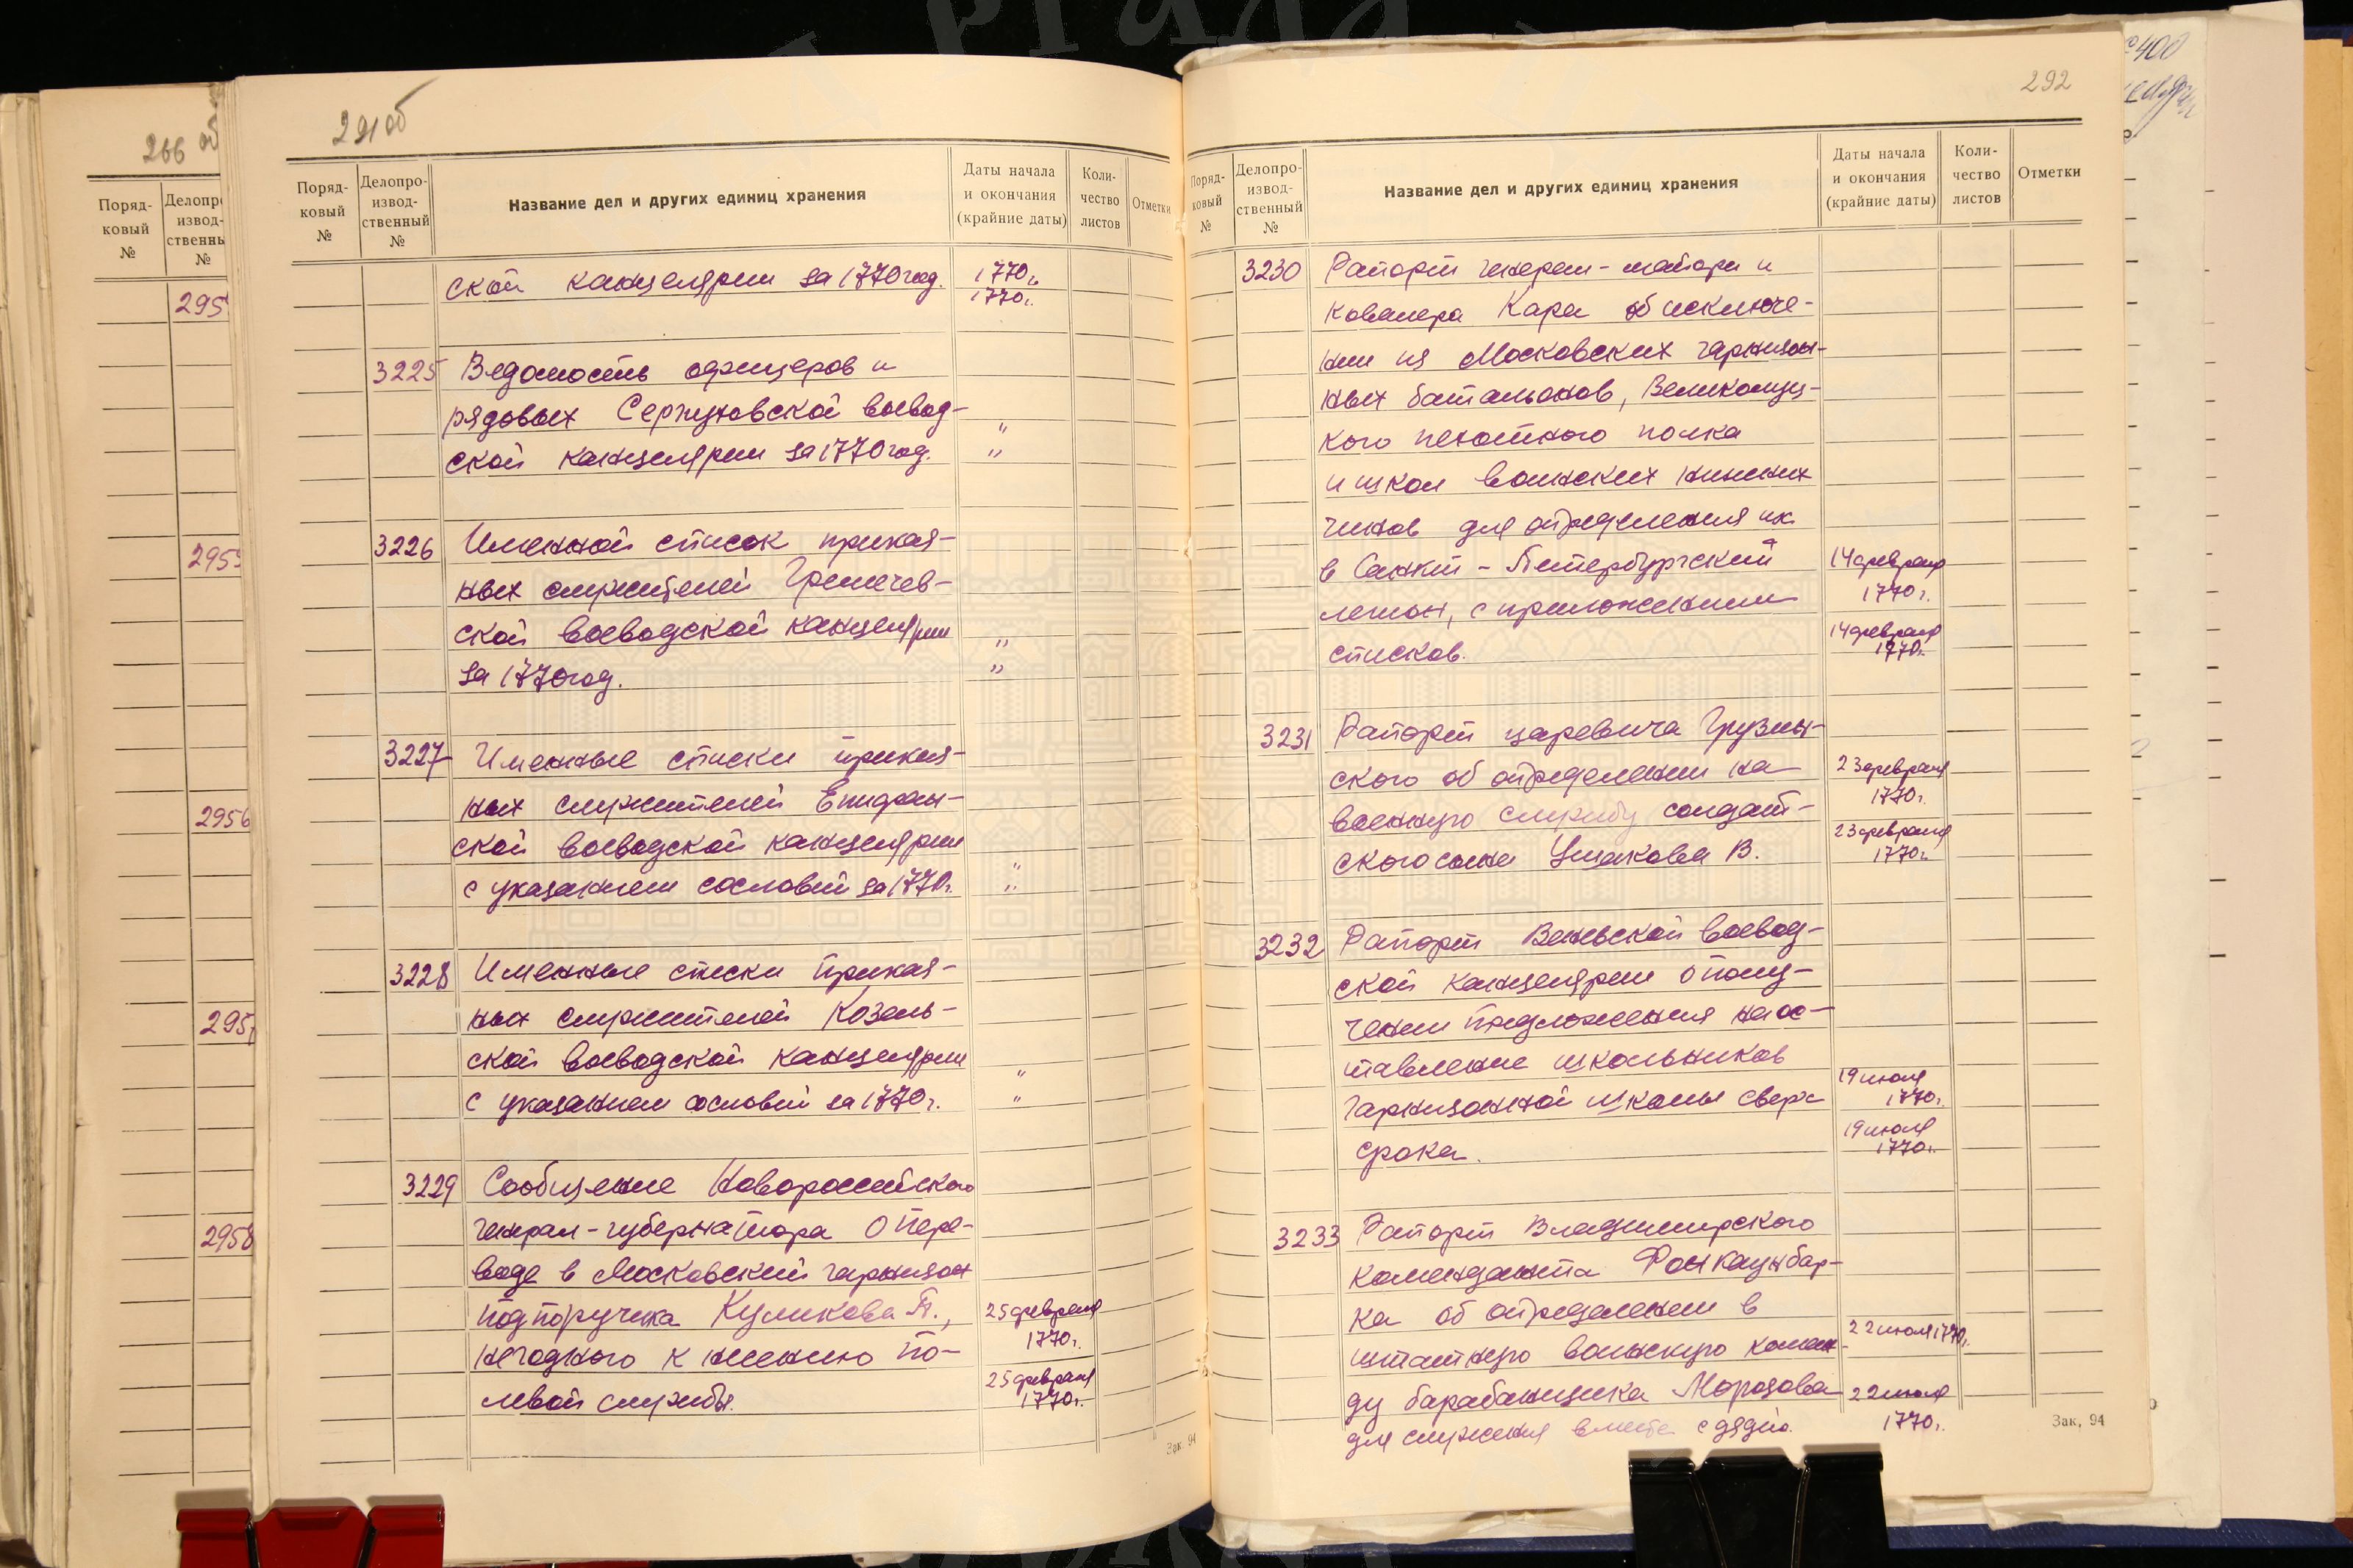 266 об
Поряд-
ковый
№
Делопр
извод-
ственны
№
295
295
2956
295
2958
291 об
Поряд-
ковый
№
Делопро-
извод-
ственный
№
Название дел и других единиц хранения
Даты начала
и окончания
(крайние даты)
Коли-
чество
листов
Отметки
ской канцелярии за 1770 год. 1770 г.
1770 г.
3225 Ведомость офицеров и
рядовых Серпуховской воевод- "
ской канцелярии за 1770 год. "
3226 Именной список приказ-
ных служителей Гремячев-
ской воеводской канцелярии "
за 1770 год. "
3227 Именные списки приказ-
ных служителей Епифан-
ской воеводской канцелярии "
с указанием сословий за 1770 г. "
3228 Именные списки приказ-
ных служителей Козель-
ской воеводской канцелярии "
с указанием сословий за 1770 г. "
3229 Сообщение Новороссийского
генерал-губернатора о пере-
воде в Московский гарнизон
подпоручика Куликова П., 25 февраля
1770 г.
негодного к несению по-
левой службы. 25 февраля
1770 г.
Зак. 94
292
Поряд-
ковый
№
Делопро-
извод-
ственный
№
Название дел и других единиц хранения
Даты начала
и окончания
(крайние даты)
Коли-
чество
листов
Отметки
3230 Рапорт генерал-майора и
кавалера Кара об исключе-
нии из Московских гарнизон-
ных батальонов, Великолуц-
кого пехотного полка
и школ воинских нижних
чинов для определения их
в Санкт-Петербургский 14 февраля
1770 г.
легион, с приложением
14 февраля
списков. 1770 г.
3231 Рапорт царевича Грузин-
ского об определении на 23 февраля
1770 г.
военную службу солдат-
23 февраля
ского сына Ушакова В. 1770 г.
3232 Рапорт воевод-
ской канцелярии о полу-
чении предложения на ос-
тавление школьников
19 июля
гарнизонной школы сверх 1770 г.
19 июля
срока. 1770 г.
3233 Рапорт Владимирского
коменданта
ка об определении в
22 июля 1770 г.
штатную воинскую коман-
ду барабанщика Морозова 22 июля
для служения вместе с дядей. 1770 г.
Зак. 94